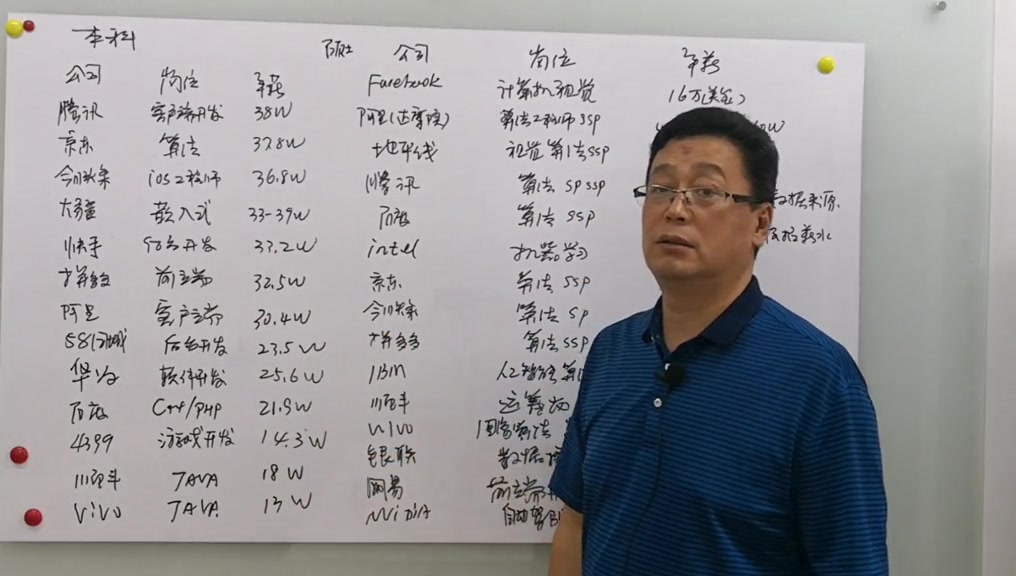 本科
硕 公司 岗位 年薪
公司 岗位 年薪 Facebook 计算机视觉 16万(美金)
腾讯 客户端开发 38W 阿里(达摩院) 算法工程师 SSP
京东 算法 37.8W 地平线 视觉算法SSP
今日头条 iOS工程师 36.8W 腾讯 算法 SP SSP 数据来源
大疆 嵌入式 33-39W 百度 算法 SSP 薪水
快手 开发 33.2W intel 机器学习
拼多多 前端 32.5W 京东 算法 SSP
阿里 客户端 30.4W 今日头条 算法 SP
58同城 后台开发 23.5W 拼多多 算法SSP
华为 软件开发 25.6W IBM 人工智能
百度 C++/PHP 21.9W
4399 游戏开发 14.3W VIVO 图像算法
JAVA 18W 银联 数据
VIVO JAVA 13W 网易 前端
NVIDIA 自动驾